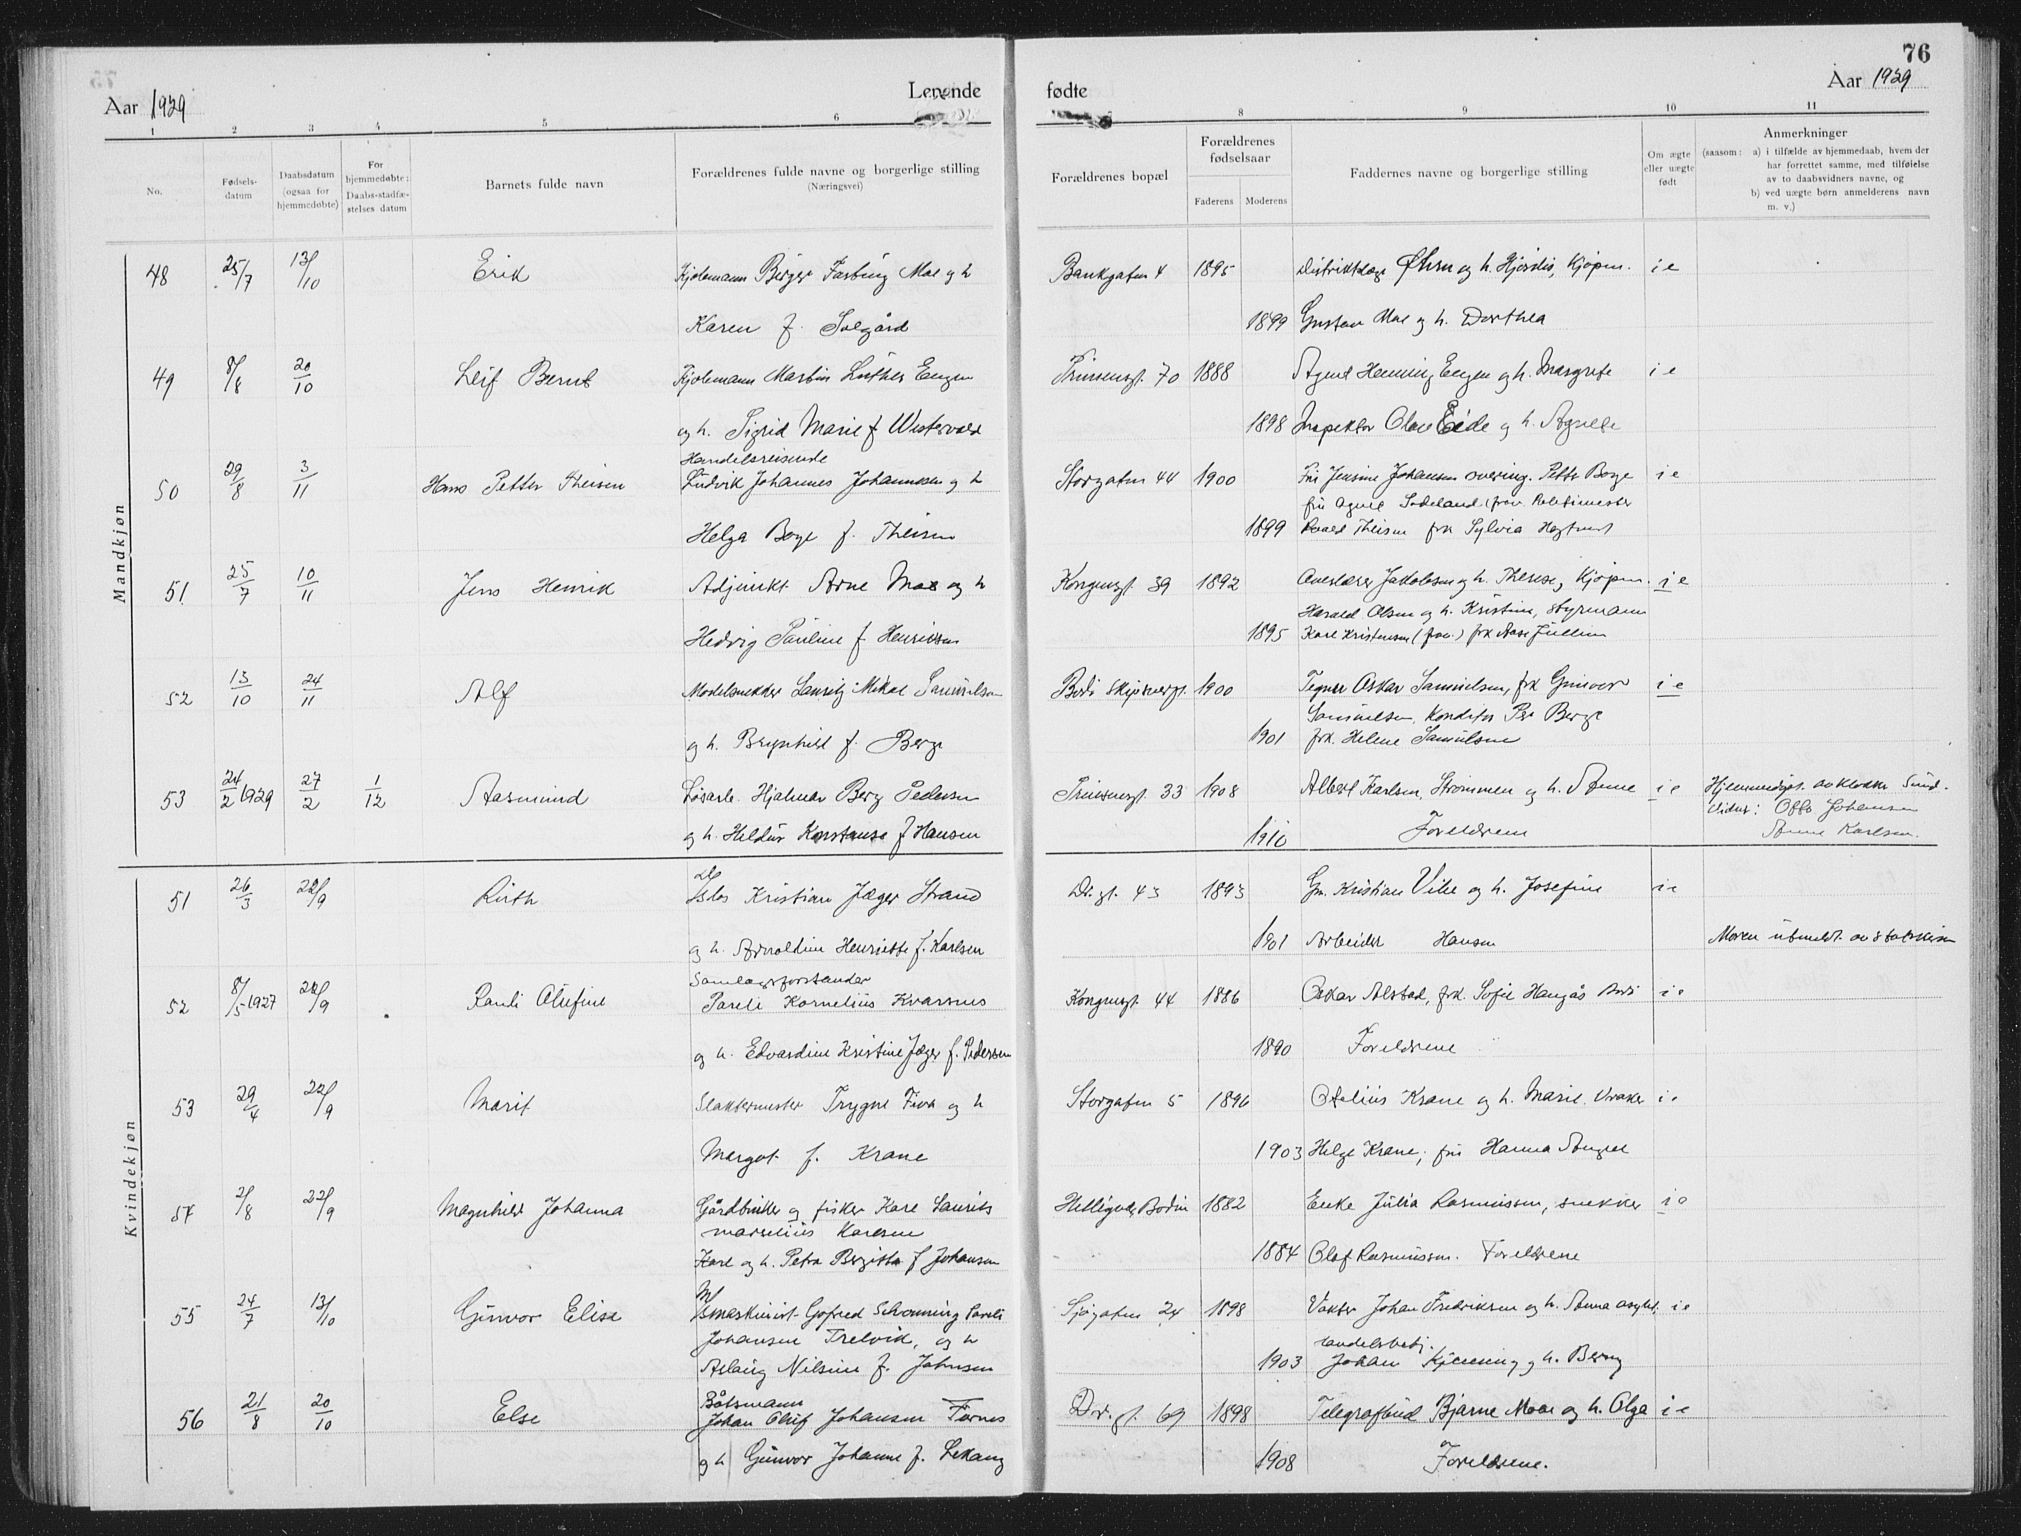 76
Aar 1929
Levende
fødte
Aar 1929
1 2 3 4 5 6 8 9 10 11
No.
Fødsels-
datum
Daabsdatum
(ogsaa for
hjemmedøbte)
For
hjemmedøbte:
Daabs-stadfæ-
stelses datum
Barnets fulde navn
Forældrenes fulde navne og borgerlige stilling
(Næringsvei)
Forældrenes bopæl
Forældrenes
fødselsaar
Faderens
Moderens
Faddernes navne og borgerlige stilling
Om ægte
eller uægte
født
Anmerkninger
(saasom: a) i tilfælde av hjemmedaab, hvem der
har forrettet samme, med tilføielse
av to daabsvidners navne, og
b) ved uægte børn anmelderens navn
m. v.)
Mandkjøn
48 25/7 13/10 Erik Kjøbmann Birger Fasting Moe og h Bankgaten 4 1895 Distriktslæge og h. Hjørdis, Kjøpm. i e
Karen f. Solgård 1899 Gustav Moe og h. Dorthea
49 8/8 20/10 Leif Bernt Kjøbmann Martin Luther Engen Prinsensgt. 70 1888 Agent Henning Engen og h. Margrete i e
og h. Sigrid Marie f Westervold 1898 Inspektør Olav Eide og h. Agnete
Handelsreisende
50 29/8 3/11 Hans Petter Theisen Ludvik Johannes Johannesen og h Storgaten 44 1900 Fru Jensine Johansen Petter Boye i e
fru Agnes Politimester
Helga Boye f. Theisen 1899 Roald Theisen frk Sylvia
51 25/7 10/11 Jens Henrik Adjunkt Arne Moe og h Kongensgt 39 1892 Overlærer Jakobsen og h. Therese, Kjøpm. i e
Harald Olsen og h. Kristine, styrmann
Hedvig Pauline f Henriksen 1895 Karl Kristensen (frav.) frk Aase Jullum
52 13/10 24/11 Alf Modelsnekker Lauritz Mikal Samuelsen Bodø 1900 Tegner Oskar Samuelsen, frk Gunvor i e
Samuelsen, Konditor Per Berge
og h. Brynhild f. Berge 1901 frk. Helene Samuelsen
53 24/2 1929 27/2 1/12 Aasmund Løsarb. Hjalmar Berg Pedersen Prinsensgt 33 1908 Albert Karlsen, Strømmen og h. Anne i e Hjemmedøpt av klokker Sund.
Vidner: Otto Johansen
og h. Heldur Konstanse f Hansen 1910 Foreldrene Anne Karlsen.
Kvindekjøn
51 26/3 22/9 Ruth Kristian Jæger Strand Dr. gt. 43 1893 Gm. Kristian Vibe og h. Josefine i e
og h. Arnoldine Henriette f. Karlsen 1901 Arbeider Hansen Moren utmeldt av statskirken
Samlagsforstander
52 8/5-1927 22/9 Randi Olufine Pareli Kornelius Kvarsnes Kongensgt 44 1886 Oskar Alstad, frk. Sofie Haugås Bodø i e
og h. Edvardine Kristine Jæger f. Pedersen 1890 Foreldrene
53 29/4 22/9 Marit Slaktermester Trygve Fiva og h Storgaten 5 1896 Otelius Krane og h. Marie. i e
Margot f. Krane 1903 Helge Krane, fru Hanna Angell
54 2/8 22/9 Magnhild Johanna Gårdbruker og fisker Karl Laurits Helligvær Bodin 1882 Enke Julia Rasmussen, snekker i e
Marselius Karlsen
Karl og h. Petra Bergitte f Johansen 1884 Olaf Rasmussen. Foreldrene
55 24/7 13/10 Gunvor Elise Maskinist Gofred Schønning Pareli Sjøgaten 24 1898 Vakter Johan Fredriksen og h. Anna i e
Johansen Trelvik, og h Handelsbetj.
Aslaug Nilsine f. Johnsen 1903 Johan Kjenning og h. Berny
Båtsmann
56 21/8 20/10 Else Johan Oluf Johansen Fornes Dr. gt. 69 1898 Telegrafbud Bjarne Moe og h. Olga i e
og h Gunvor Johanne f. Lekang 1908 Foreldrene.